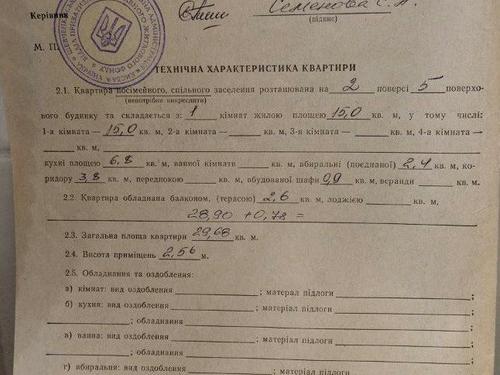 Керівник Семенова С. А.
(підпис)
М. П.
ТЕХНІЧНА ХАРАКТЕРИСТИКА КВАРТИРИ
2.1. Квартира посімейного, спільного заселення розташована на 2 поверсі 5 поверхо-
(непотрібне викреслити)
вого будинку та складається з: 1 кімнат жилою площею 15,0 кв. м, у тому числі:
1-а кімната — 15,0 кв. м, 2-а кімната — кв. м, 3-я кімната — кв. м, 4-а кімната —
кв. м,
кухні площею 6,8 кв. м, ванної кімнати кв. м, вбиральні (поєднаної) 2,4 кв. м, ко-
ридору 3,8 кв. м, передпокою кв. м, вбудованої шафи 0,9 кв. м, веранди кв. м.
2.2. Квартира обладнана балконом, (терасою) 2,6 кв. м, лоджією кв. м.
28,90 + 0,78 =
2.3. Загальна площа квартири 29,68 кв. м.
2.4. Висота приміщень 2,56 м.
2.5. Обладнання та оздоблення:
а) кімнат: вид оздоблення ; матерал підлоги ;
б) кухня: вид оздоблення ; матеріал підлоги
; обладнання ;
в) ванна: вид оздоблення ; матеріал підлоги
; обладнання ;
г) вбиральня: вид оздоблення ; матеріал підлоги